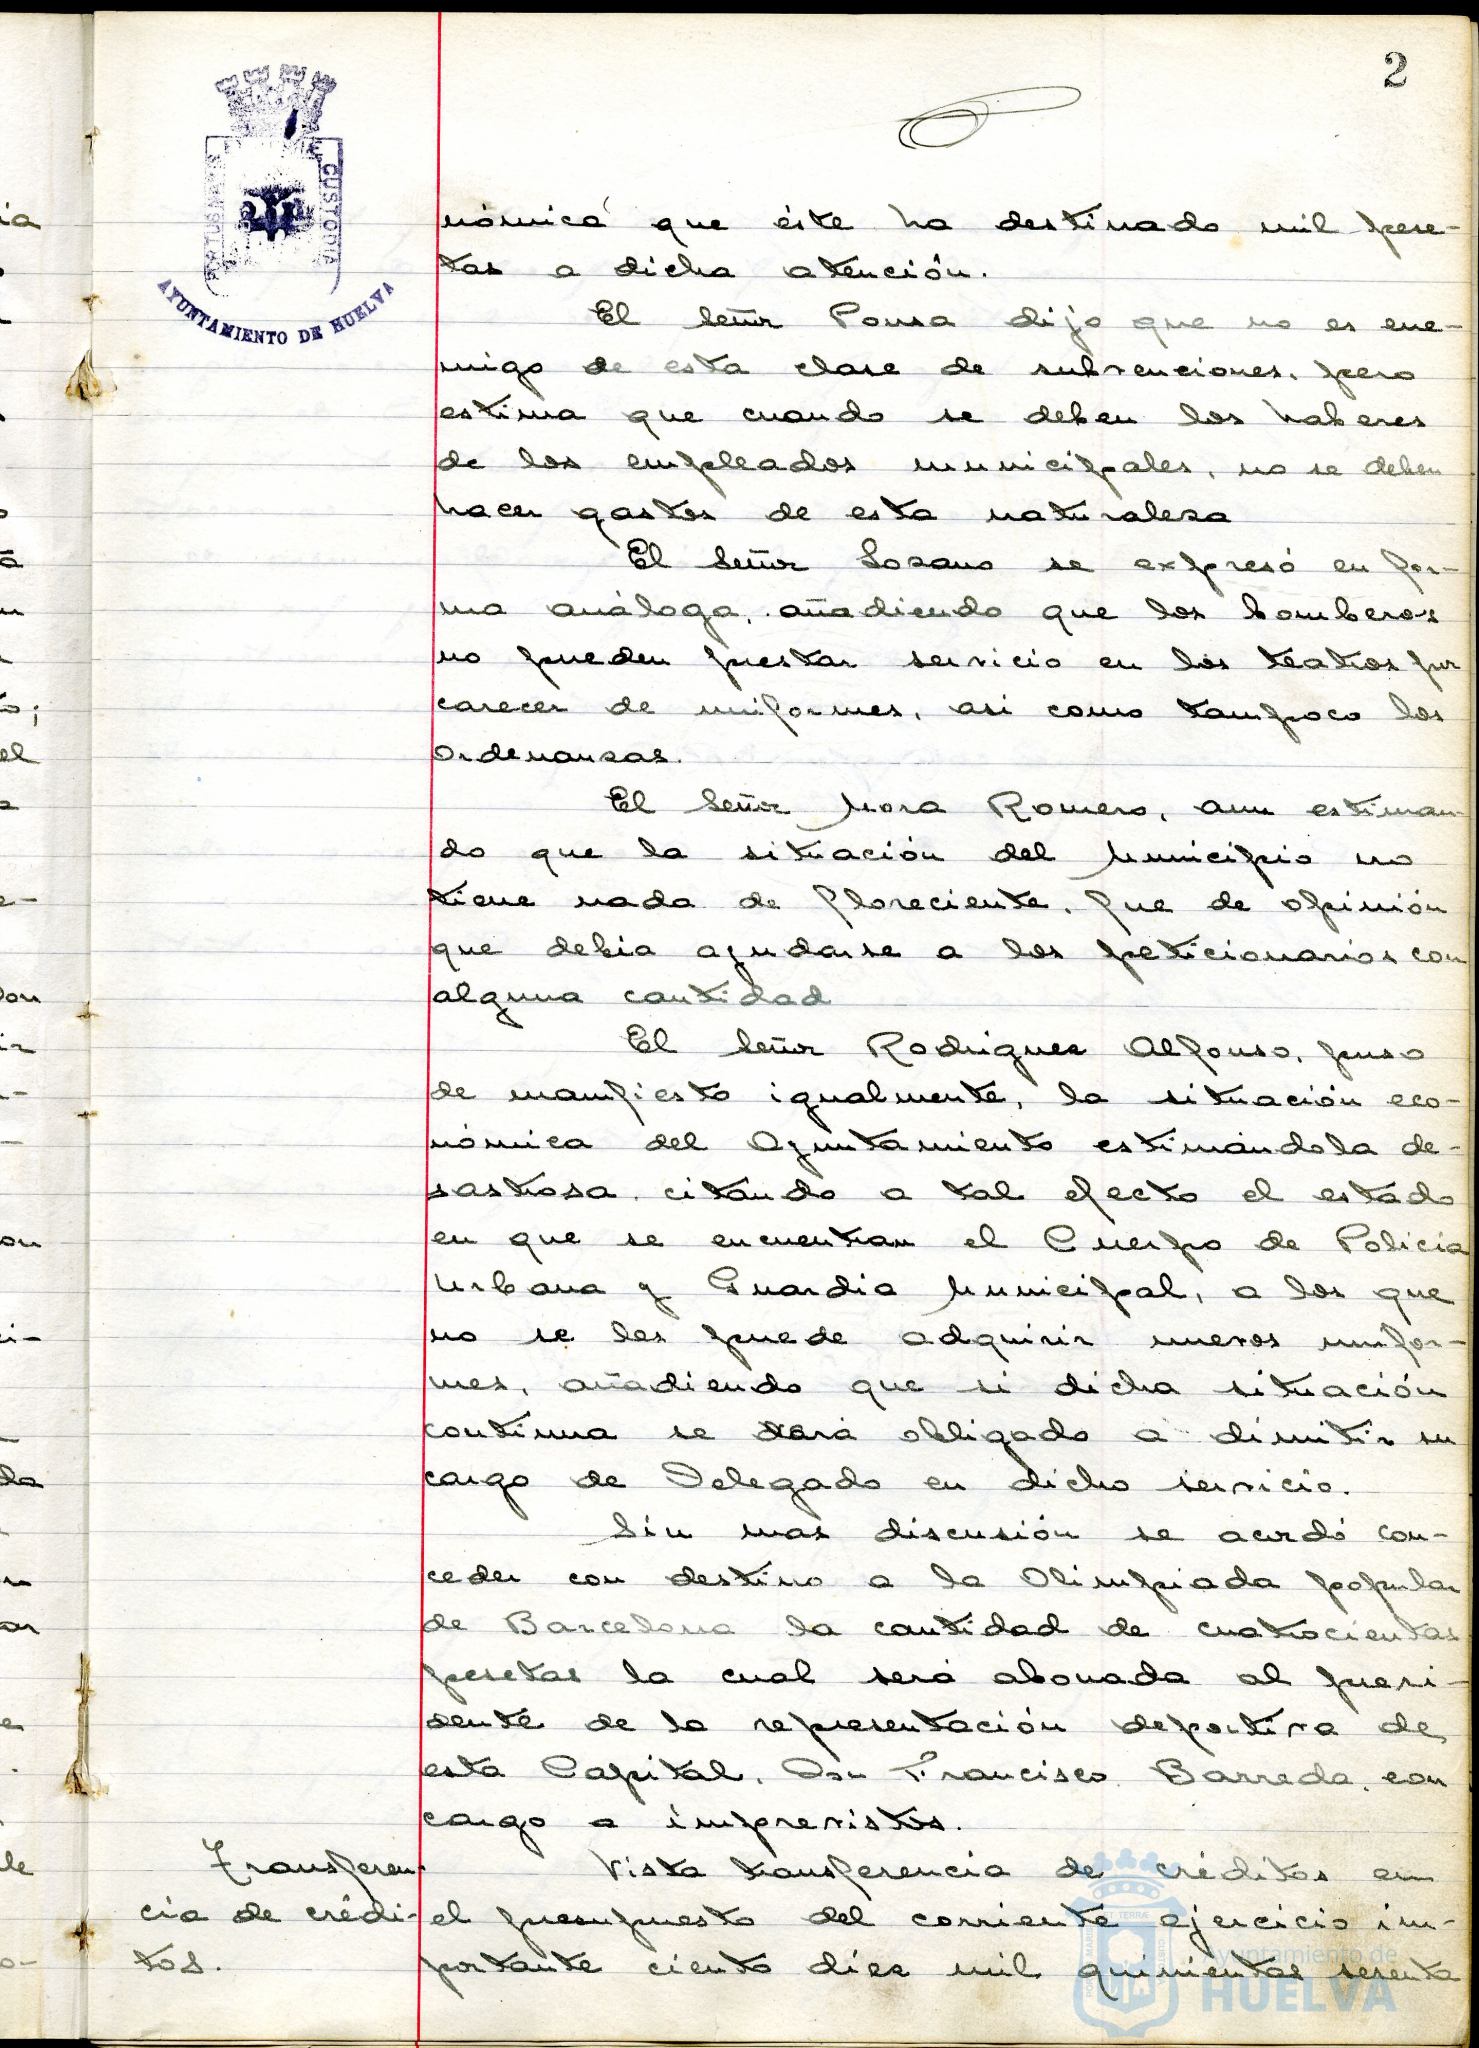 2
CUSTODIA
AYUNTAMIENTO DE HUELVA
nómica que éste ha destinado mil pese-
tas a dicha atención.
El Señor Ponsa dijo que no es ene-
migo de esta clase de subvenciones, pero
estima que cuando se deben los haberes
de los empleados municipales, no se deben
hacer gastos de esta naturaleza
El Señor Lozano se expresó en for-
ma análoga, añadiendo que los bomberos
no pueden prestar servicio en los teatros por
carecer de uniformes, asi como tampoco los
ordenanzas.
El Señor Mora Romero, aun estiman-
do que la situación del Municipio no
tiene nada de floreciente, fue de opinión
que debia ayudarse a los peticionarios con
alguna cantidad
El Señor Rodriguez Alfonso, puso
de manifiesto igualmente, la situación eco-
nómica del Ayuntamiento estimándola de-
sastrosa, citando a tal efecto el estado
en que se encuentran el Cuerpo de Policia
Urbana y Guardia Municipal, a los que
no se les puede adquirir nuevos unifor-
mes, añadiendo que si dicha situación
continua se verá obligado a dimitir su
cargo de Delegado en dicho servicio.
Sin mas discusión se acordó con-
ceder con destino a la Olimpiada popular
de Barcelona la cantidad de cuatrocientas
pesetas la cual será abonada al presi-
dente de la representación deportiva de
esta Capital, Don Francisco Barreda, con
cargo a imprevistos.
Transferen-
cia de crédi-
tos.
Vista transferencia de créditos en
el presupuesto del corriente ejercicio im-
portante ciento diez mil quinientas sesenta
Ayuntamiento de
HUELVA